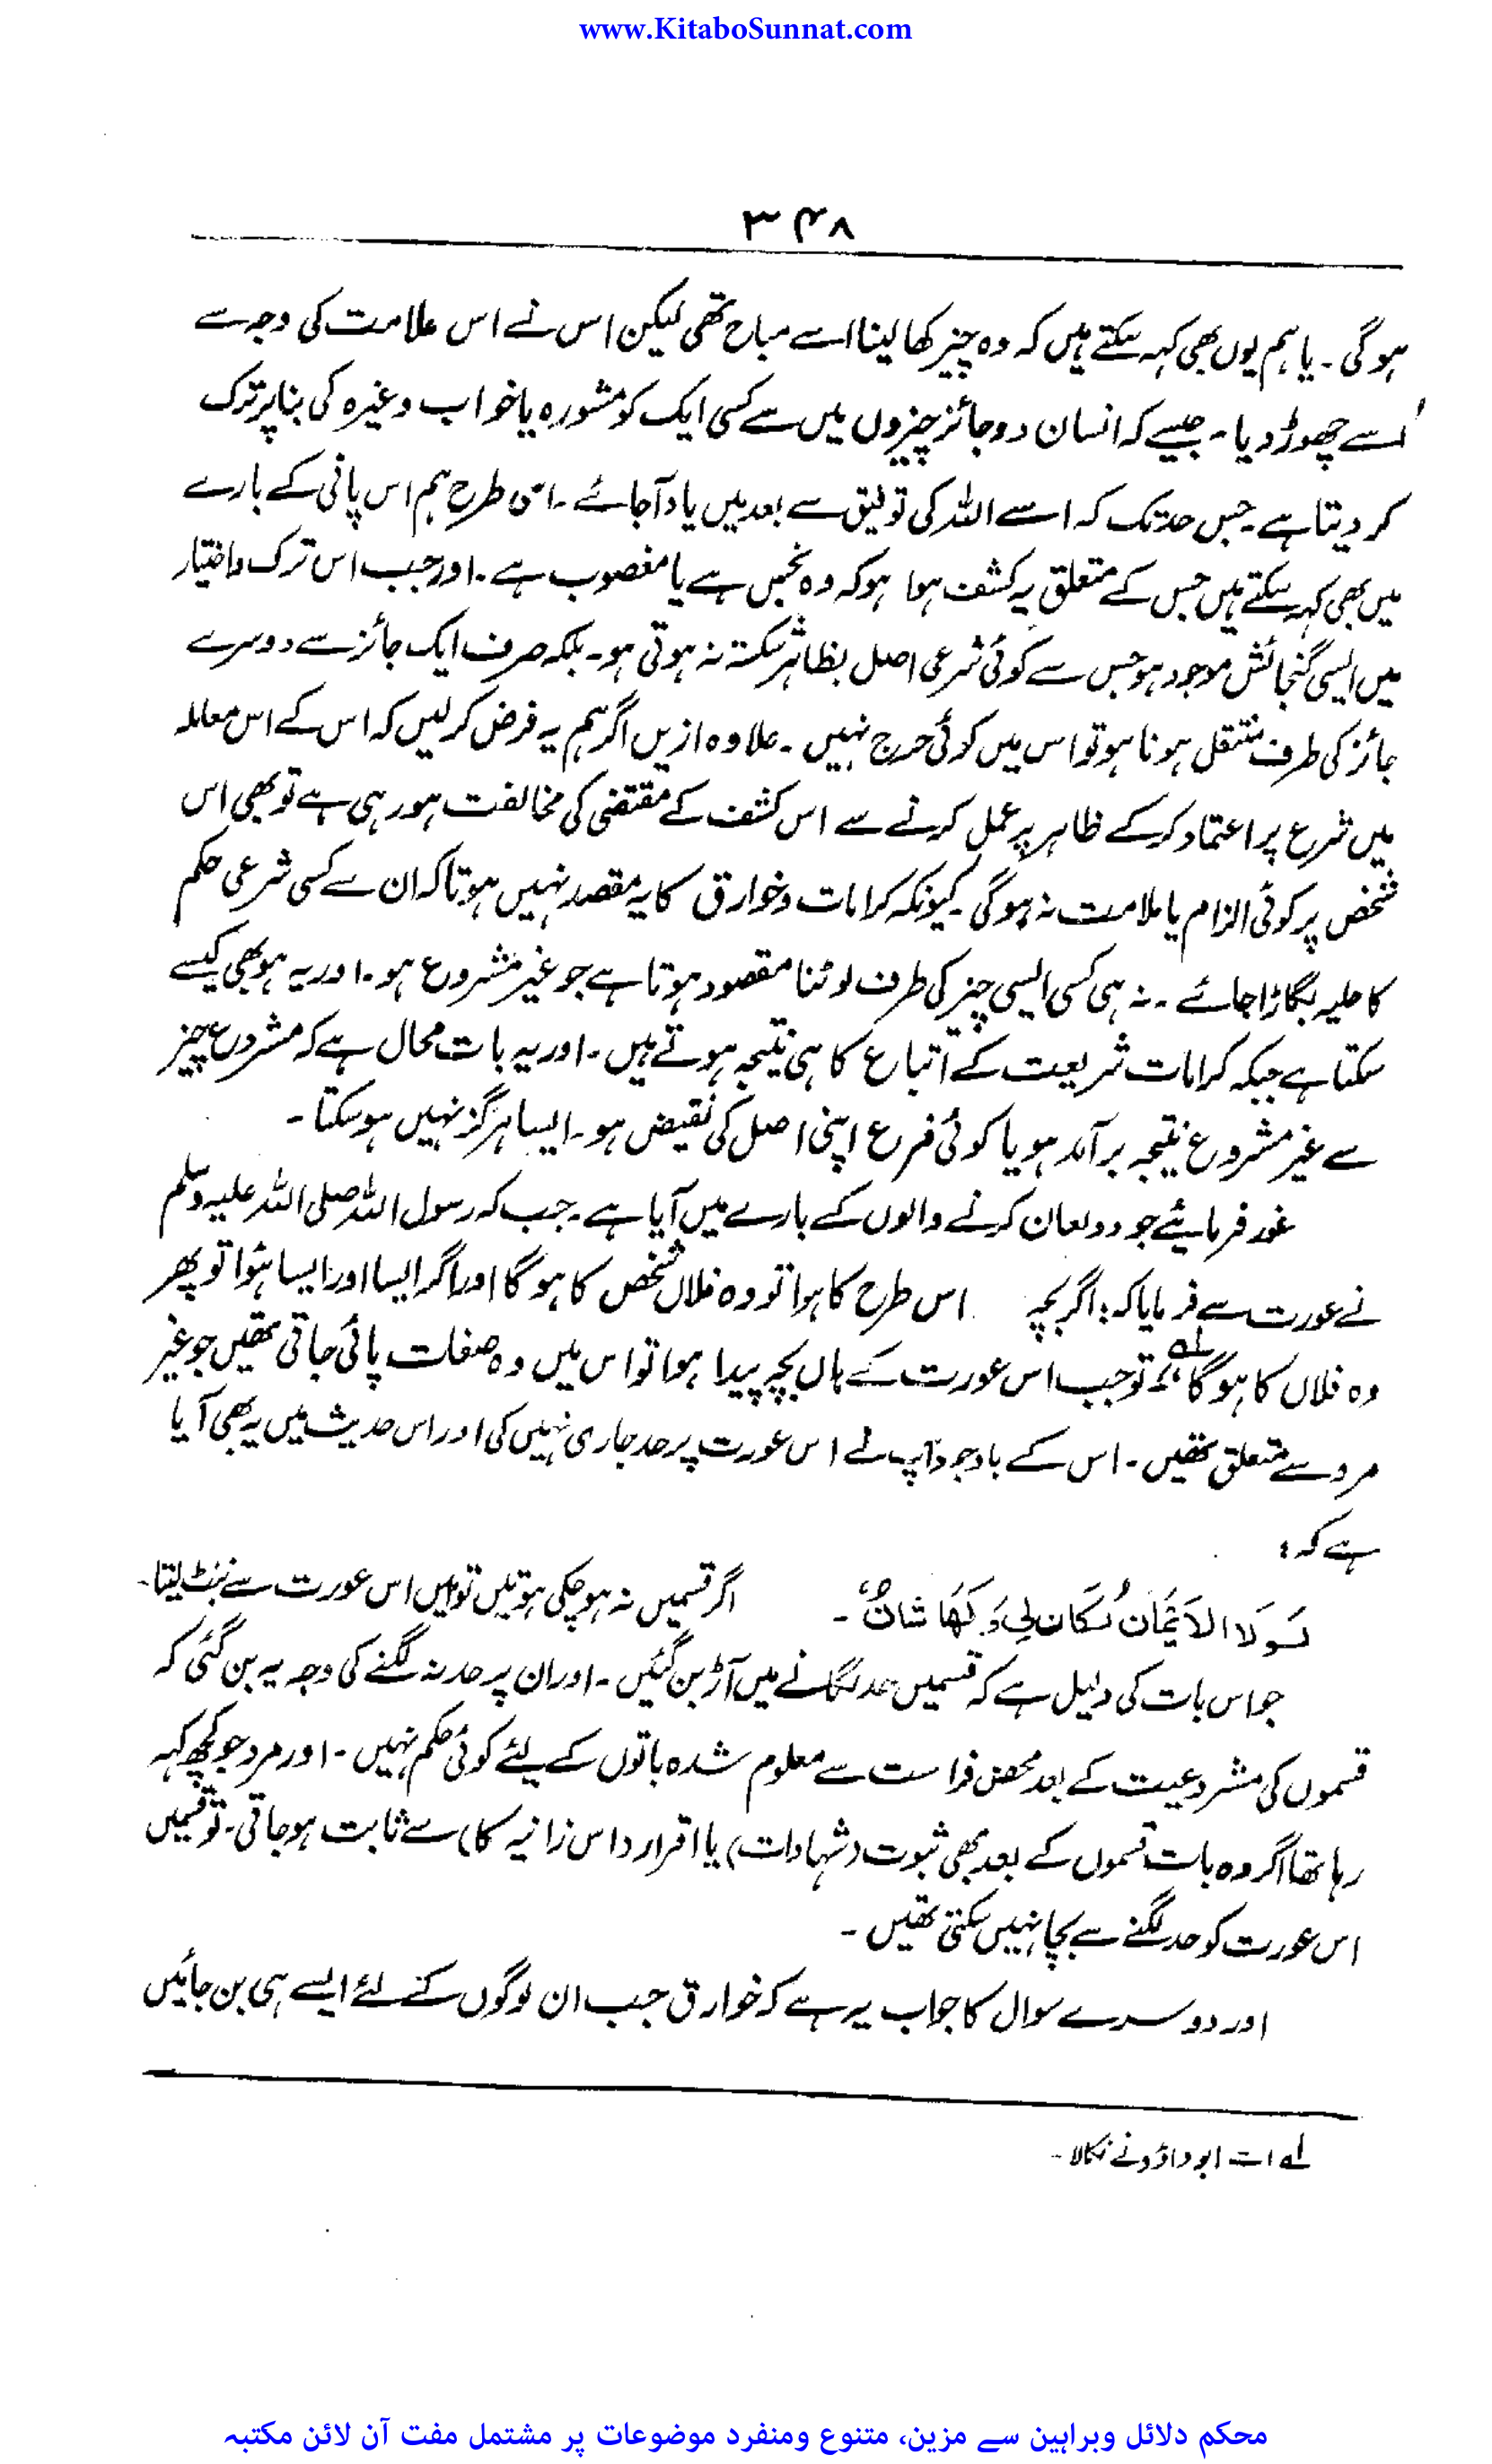 www.KitaboSunnat.com
۳۴۸
ہوگی ۔ یا ہم یوں بھی کہہ سکتے ہیں کہ وہ چیز کھا لینا اسے مباح تھی لیکن اس نے اس علامت کی وجہ سے
اُسے چھوڑ دیا ۔ جیسے کہ انسان دو جائز چیزوں میں سے کسی ایک کو مشورہ یا خواب وغیرہ کی بنا پر ترک
کر دیتا ہے ۔ جس حد تک کہ اسے اللہ کی توفیق سے بعد میں یاد آجائے ۔ اسی طرح ہم اس پانی کے بارے
میں بھی کہہ سکتے ہیں جس کے متعلق یہ کشف ہوا ہو کہ وہ نجس ہے یا مغصوب ہے ۔ اور جب اس ترک و اختیار
میں ایسی گنجائش موجود ہو جس سے کوئی شرعی اصل بظاہر شکستہ نہ ہوتی ہو ۔ بلکہ صرف ایک جائز سے دوسرے
جائز کی طرف منتقل ہونا ہو تو اس میں کوئی حرج نہیں ۔ علاوہ ازیں اگر ہم یہ فرض کر لیں کہ اس کے اس معاملہ
میں شرع پر اعتماد کرکے ظاہر پر عمل کرنے سے اس کشف کے مقتضی کی مخالفت ہو رہی ہے تو بھی اس
شخص پر کوئی الزام یا ملامت نہ ہوگی ۔ کیونکہ کرامات و خوارق کا یہ مقصد نہیں ہوتا کہ ان سے کسی شرعی حکم
کا حلیہ بگاڑا جائے ۔ نہ ہی کسی ایسی چیز کی طرف لوٹنا مقصود ہوتا ہے جو غیر مشروع ہو ۔ اور یہ ہو بھی کیسے
سکتا ہے جبکہ کرامات شریعت کے اتباع کا ہی نتیجہ ہوتے ہیں ۔ اور یہ بات محال ہے کہ مشروع چیز
سے غیر مشروع نتیجہ برآمد ہو یا کوئی فرع اپنی اصل کی نقیض ہو ۔ ایسا ہرگز نہیں ہو سکتا ۔
غور فرمائیے جو دو لعان کرنے والوں کے بارے میں آیا ہے ۔ جب کہ رسول اللہ صلی اللہ علیہ وسلم
نے عورت سے فرمایا کہ : اگر بچہ اس طرح کا ہوا تو وہ فلاں شخص کا ہو گا اور اگر ایسا اور ایسا ہُوا تو پھر
وہ فلاں کا ہو گا لہ تو جب اس عورت کے ہاں بچہ پیدا ہوا تو اس میں وہ صفات پائی جاتی تھیں جو غیر
مرد سے متعلق تھیں ۔ اس کے باوجود آپ نے اس عورت پر حد جاری نہیں کی اور اس حدیث میں یہ بھی آیا
ہے کہ :
لَوْلَا الاَیْمَانُ لَکَانَ لِیْ وَ لَھَا شَانٌ ۔ اگر قسمیں نہ ہو چکی ہوتیں تو میں اس عورت سے نبٹ لیتا ۔
جو اس بات کی دلیل ہے کہ قسمیں حد لگانے میں آڑ بن گئیں ۔ اور ان پر حد نہ لگنے کی وجہ یہ بن گئی کہ
قسموں کی مشروعیت کے بعد محض فراست سے معلوم شدہ باتوں کے لئے کوئی حکم نہیں ۔ اور مرد جو کچھ کہہ
رہا تھا اگر وہ بات قسموں کے بعد بھی ثبوت (شہادات) یا اقرار (اس زانیہ کا) سے ثابت ہو جاتی ۔ تو قسمیں
اس عورت کو حد لگنے سے بچا نہیں سکتی تھیں ۔
اور دوسرے سوال کا جواب یہ ہے کہ خوارق جب ان لوگوں کے لئے ایسے ہی بن جائیں
لہ اسے ابوداؤد نے نکالا ۔
محکم دلائل وبراہین سے مزین، متنوع ومنفرد موضوعات پر مشتمل مفت آن لائن مکتبہ